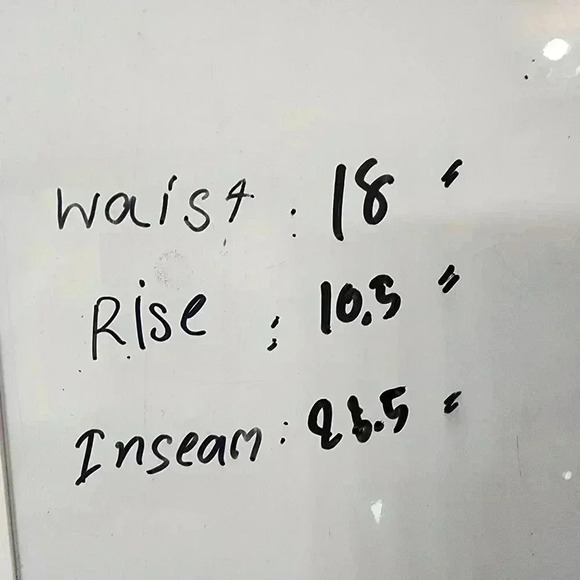 Waist : 18 "
Rise : 10.5 "
Inseam : "